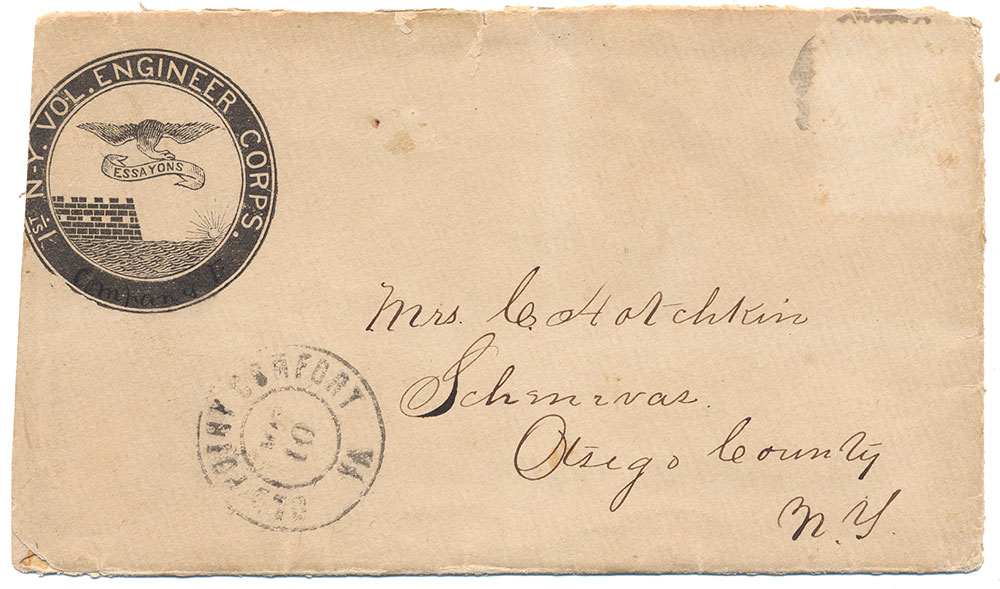 1ST N-Y. VOL. ENGINEER CORPS.
ESSAYONS
Company
Mrs. C. Hotchkin
Schenevas.
Otsego County
N. Y.
OLD POINT COMFORT VA